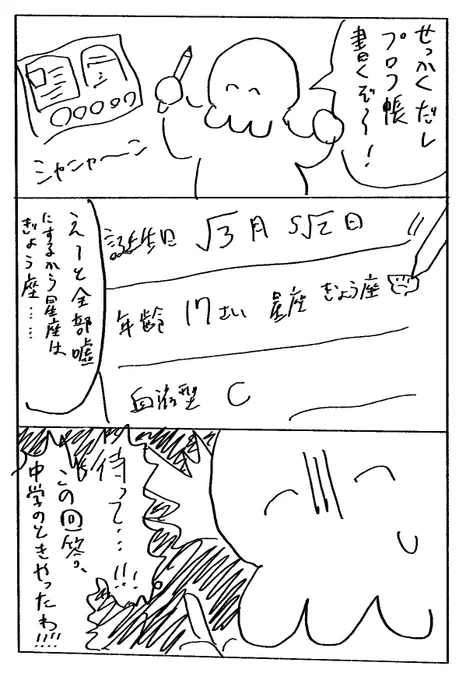 せっかくだし
プロフ帳
書くぞ〜!
シャシャ〜ン
誕生日 √3月 5√2日
年齢 17さい 星座 ぎょう座
血液型 C
え〜と全部嘘
にするから星座は
ぎょう座……
待って…!!
この回答、
中学のときやったわ!!!!